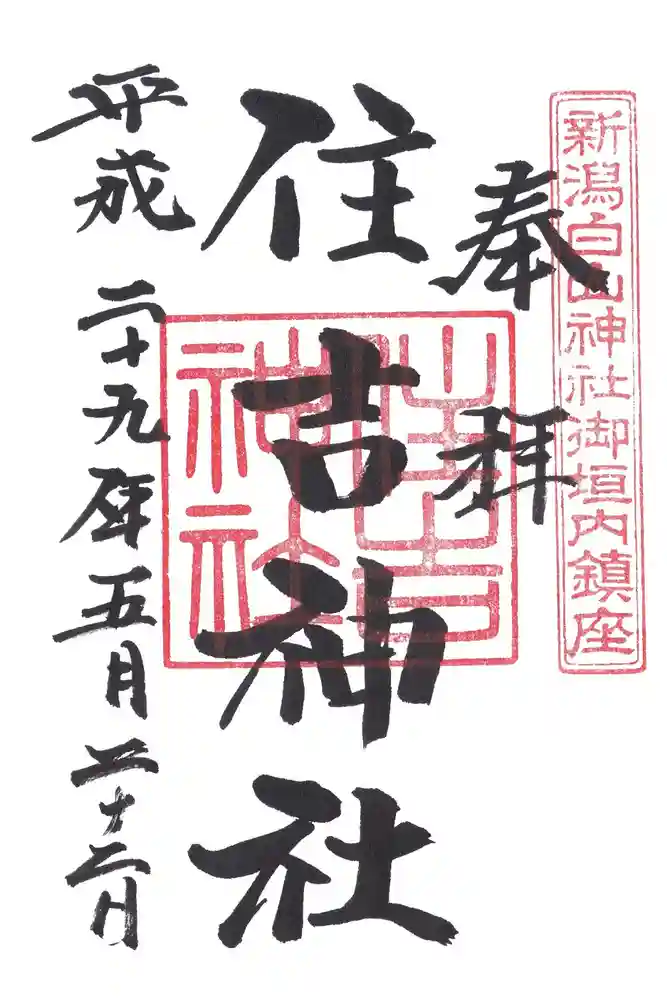 新潟白山神社御垣内鎮座
奉拝
住吉神社
住吉神社
平成二十九年五月二十二日